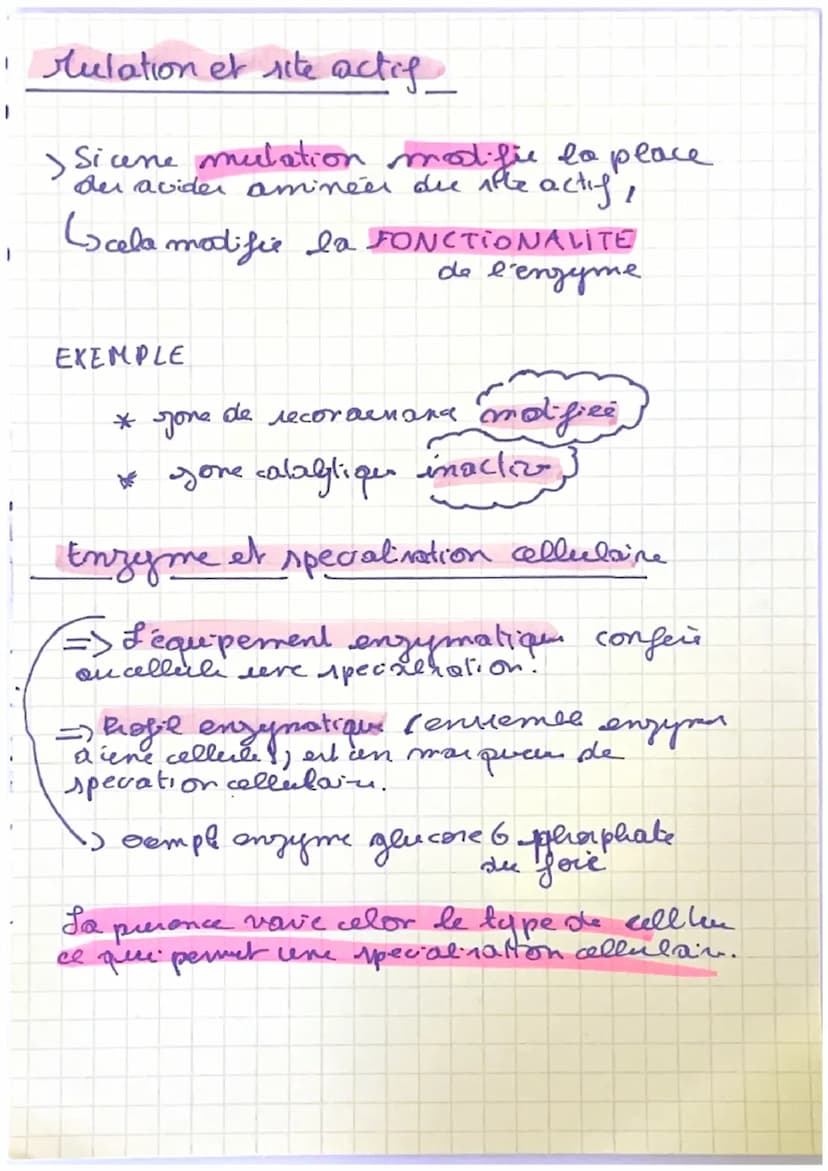 Mutation et site actif
> Si une mutation modifie la place
des acides aminées du site actif,
↳ cela modifie la FONCTIONALITE
de l'enzyme
EXEMPLE
* zone de reconnaissance modifiée
* zone catalytique inactive
Enzyme et specialisation cellulaire
=> L'équipement enzymatique confere
au cellule une specialisation.
=> Profil enzymatique (ensemble enzymes
d'une cellule), est un marqueur de
specation cellulaire.
-> exemple enzyme glucose 6-phosphate
du foie
La presence varie celon le type de cellule
ce qui permet une specialisation cellulaire.